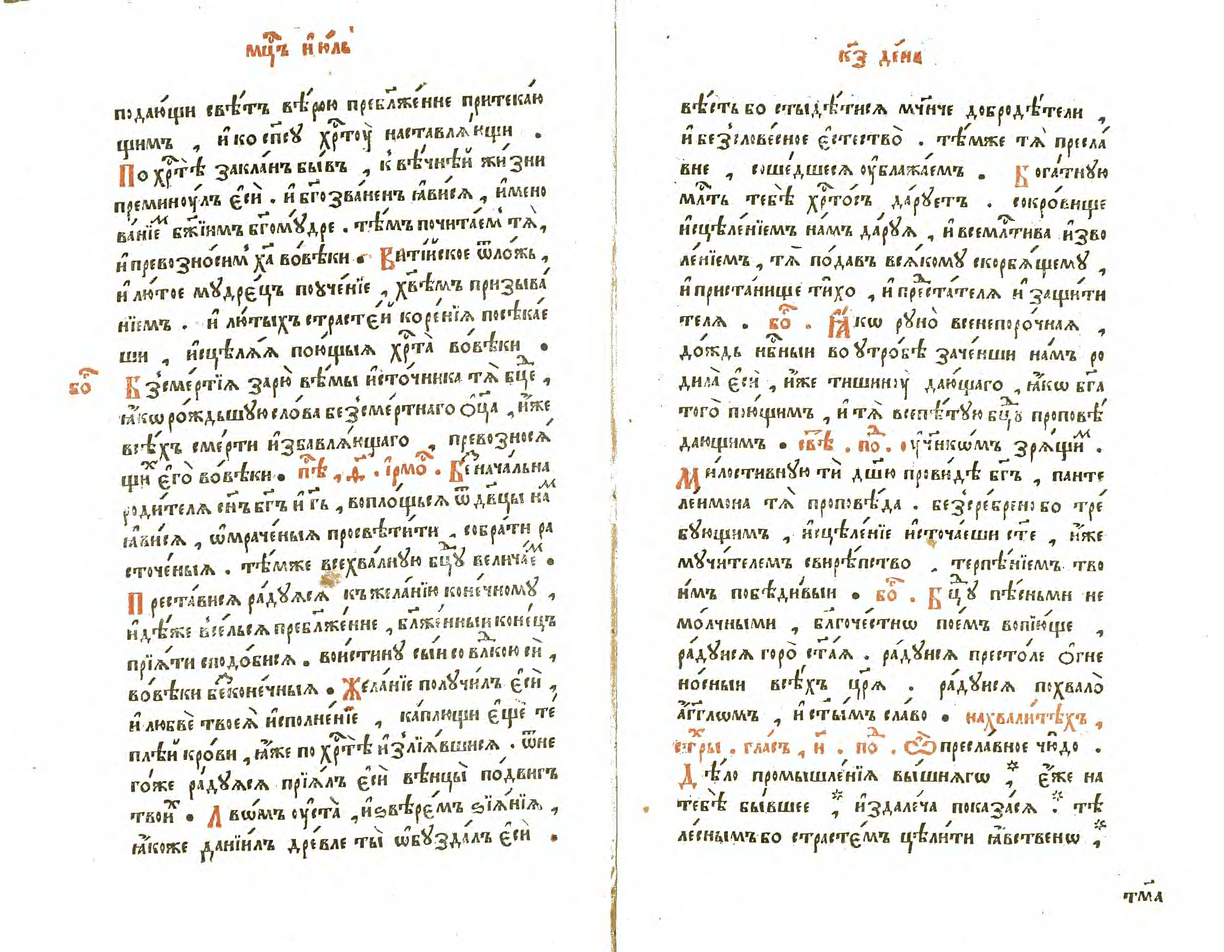 мц҃ъ і҆ю́ль
подаю́щи свѣ́тъ вѣ́рою пребл҃же́нне притекаю́
щимъ , и҆ ко сп҃су хр҃тоу̀ наставлѧ́ющи .
По хр҃тѣ̀ закла́нъ бы́въ , к вѣ́чнѣй жи́зни
преминоу́лъ є҆сѝ . и҆ бг҃озва́ненъ ꙗ҆ви́сѧ , и҆мено
ва́нїемъ бж҃їимъ бг҃ому́дре . тѣ́мъ почита́ем тѧ̀ ,
и҆ превозно́сим хр҃та̀ во вѣ́ки . Вити́йское ѿло́жь ,
и҆ лю́тое мудре́цъ поуче́нїе , хв҃ѣмъ призыва́
нїемъ . и҆ лю́тыхъ страсте́й коре́нїѧ посѣка́е
ши , и҆сцѣлѧ́ѧ пою́щыѧ хр҃та̀ во вѣ́ки .
бо҃
Безсме́ртїѧ зарю̀ вѣ́мы и҆сто́чника тѧ̀ бц҃е ,
ꙗ҆́кѡ ро́ждьшую сло́ва безсме́ртнаго ѻ҆ц҃а̀ , и҆́же
всѣ́хъ сме́рти и҆збавлѧ́ющаго , превозносѧ́
щих є҆го̀ во вѣ́ки . пѣ҃ , д҃ . і҆рмо́с . Безнача́льна
роди́телѧ сн҃ъ бг҃ъ и҆ гд҃ь , вопло́щьсѧ ѿ дв҃цы на́м
ꙗ҆ви́сѧ , ѡ҆мраче́ныѧ просвѣти́ти , собра́ти ра
сточе́ныѧ . тѣ́мже всехва́лную бц҃у велича́ем .
Преста́висѧ ра́дуѧсѧ къ жела́нїю коне́чному ,
и҆дѣ́же всели́сѧ пребл҃же́нне , бл҃же́нныи коне́цъ
прїѧ́ти сподо́бисѧ . вои́стину сы́и со влⷣкою си́ ,
во вѣ́ки безконе́чныѧ . Жела́нїе получи́лъ є҆сѝ ,
и҆ любвѐ твоеѧ̀ и҆сполне́нїе , ка́плющи є҆щѐ те́
плѣй кро́ви , ꙗ҆́же по хр҃тѣ̀ и҆злїѧ́вшисѧ . ѿ не
го́же ра́дуѧсѧ прїѧ́лъ є҆сѝ вѣнцы̀ по́двигъ
твои́х . Львѡ́мъ оу҆ста̀ , и҆ ѕвѣре́мъ ѕїѧ́нїѧ ,
ꙗ҆́коже данїи́лъ дре́вле ты̀ ѡ҆бузда́лъ є҆сѝ .
к҃з де́нь
вѣ́сть бо стыдѣ́тисѧ мч҃нче добродѣ́тели ,
и҆ безслове́сное є҆стество̀ . тѣ́мже тѧ̀ пресла́
вне , соше́дшесѧ оу҆блажа́емъ . Бога́тную
млⷭ҇ть тебѣ̀ хр҃то́съ да́руетъ . сокро́вище
и҆сцѣле́нїемъ на́мъ да́руѧ , и҆ всемлⷭ҇тива и҆зво
ле́нїемъ , тѧ̀ пода́въ всѧ́кому скорбѧ́щему ,
и҆ приста́нище ти́хо , и҆ преста́телѧ и҆ защи́ти
телѧ . бо҃ . Ꙗ҆́кѡ руно̀ всенепоро́чнаѧ ,
до́ждь нбⷭ҇ныи во утро́бѣ заче́нши на́мъ ро
дила̀ є҆сѝ , и҆́же тишину̀ даю́щаго , ꙗ҆́кѡ бг҃а
того̀ пою́щимъ , и҆ тѧ̀ всепѣ́тую бц҃у проповѣ́
дающимъ . свѣ́ . по́д . оу҆чн҃кѡмъ зрѧ́щим .
Ми́лостивную тѝ дш҃ю прови́дѣ бг҃ъ , панте
леи́мона тѧ̀ проповѣ́да . безсре́брено бо тре́
бующимъ , и҆сцѣле́нїе и҆сточа́еши ст҃е , и҆́же
мучи́телемъ свирѣ́пство , терпѣ́нїемъ тво
и́мъ побѣди́выи . бо҃ . Бц҃у пѣ́сньми не
мо́лчными , бл҃гоче́стнѡ пое́мъ вопїю́ще ,
ра́дуисѧ горо̀ ст҃а́ѧ . ра́дуисѧ престо́ле ѻ҆́гне
но́сныи всѣ́хъ цр҃ѧ̀ . ра́дуисѧ похвало̀
а҆́гг҃лѡмъ , и҆ ст҃ы́мъ сла́во . на хвали́тѣхъ ,
стⷯры . гла́съ , и҃ . по́д . Ѽ пресла́вное чю́до .
Дѣ́ло промышле́нїѧ вы́шнѧгѡ * є҆́же на
тебѣ̀ бы́вшее * и҆здале́ча показа́сѧ * тѣ
ле́снымъ бо страсте́мъ цѣли́ти ꙗ҆́вственѡ *
тм҃а